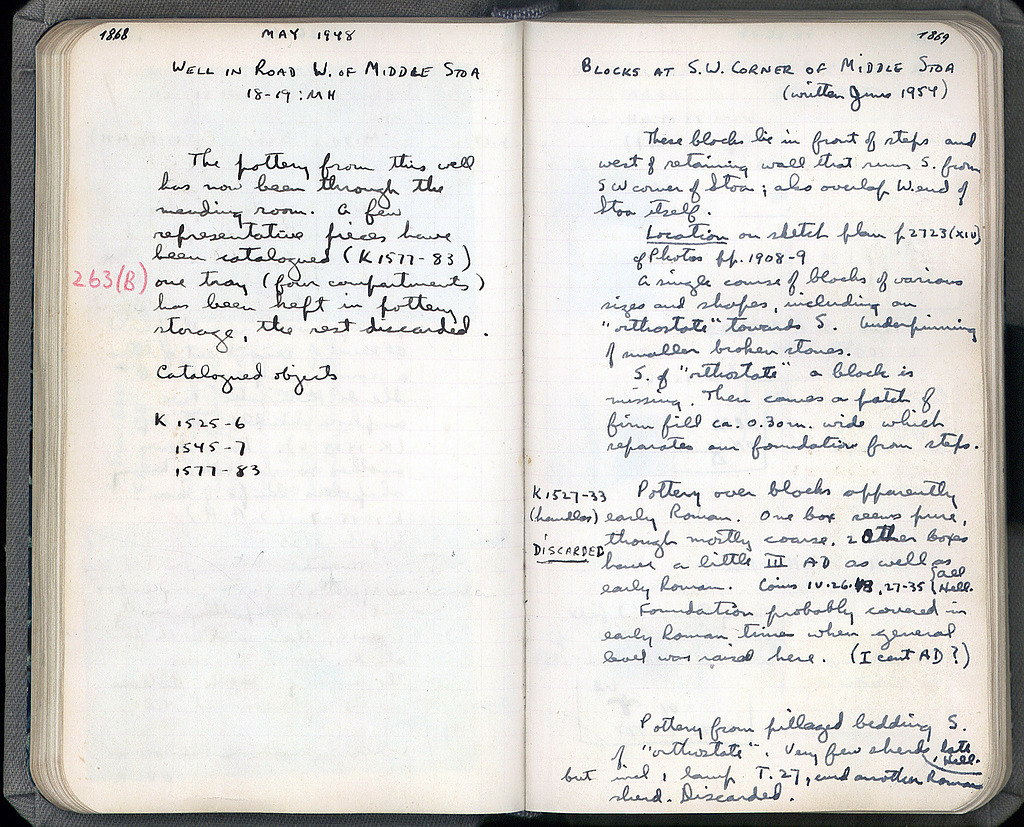 1868 MAY 1948
WELL IN ROAD W. OF MIDDLE STOA
18-19 : MH
The pottery from this well
has now been through the
mending room. A few
representative pieces have
been catalogued (K 1577-83)
263(B) one tray (four compartments)
has been kept in pottery
storage, the rest discarded.
Catalogued objects
K 1525-6
1545-7
1577-83
1869
BLOCKS AT S.W. CORNER OF MIDDLE STOA
(written June 1954)
These blocks lie in front of steps and
west of retaining wall that runs S. from
SW corner of Stoa ; also overlap W. end of
Stoa itself.
Location on sketch plan p 2723 (XIV)
cf Photos pp. 1908-9
A single course of blocks of various
sizes and shapes, including an
"orthostate" towards S. Underpinning
of smaller broken stones.
S. of "orthostate" a block is
missing. Then comes a patch of
firm fill ca. 0.30 m. wide which
separates our foundation from steps.
K 1527-33
(handles)
DISCARDED
Pottery over blocks apparently
early Roman. One box seems pure,
though mostly coarse. 2 other boxes
have a little III AD as well as
early Roman. Coins IV.26.48, 27-35 {all Hell.
Foundation probably covered in
early Roman times when general
level was raised here. (I cent AD ?)
Pottery from pillaged bedding S.
of "orthostate". Very few sherds, late Hell.
but incl. 1 lamp T. 27, and another Roman
sherd. Discarded.